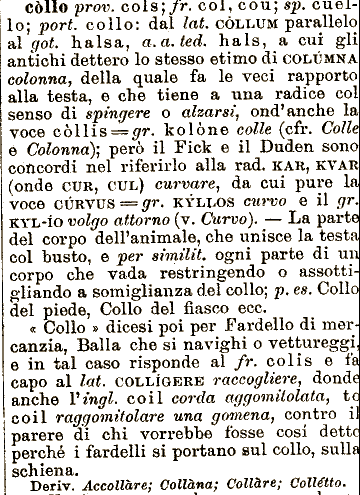 còllo prov. cols; fr. col, cou; sp. cuel-
lo; port. collo: dal lat. CÒLLUM parallelo
al got. halsa, a. a. ted. hals, a cui gli
antichi dettero lo stesso etimo di COLÚMNA
colonna, della quale fa le veci rapporto
alla testa, e che tiene a una radice col
senso di spingere o alzarsi, ond'anche la
voce còllis = gr. kolône colle (cfr. Colle
e Colonna); però il Fick e il Duden sono
concordi nel riferirlo alla rad. KAR, KVAR
(onde CUR, CUL) curvare, da cui pure la
voce CÚRVUS = gr. KÝLLOS curvo e il gr.
KYL-ío volgo attorno (v. Curvo). — La parte
del corpo dell'animale, che unisce la testa
col busto, e per similit. ogni parte di un
corpo che vada restringendo o assotti-
gliando a somiglianza del collo; p. es. Collo
del piede, Collo del fiasco ecc.
« Collo » dicesi poi per Fardello di mer-
canzia, Balla che si navighi o vettureggi,
e in tal caso risponde al fr. colis e fa
capo al lat. COLLÍGERE raccogliere, donde
anche l'ingl. coil corda aggomitolata, to
coil raggomitolare una gomena, contro il
parere di chi vorrebbe fosse cosí detto
perché i fardelli si portano sul collo, sulla
schiena.
Deriv. Accollàre; Collàna; Collàre; Collétto.